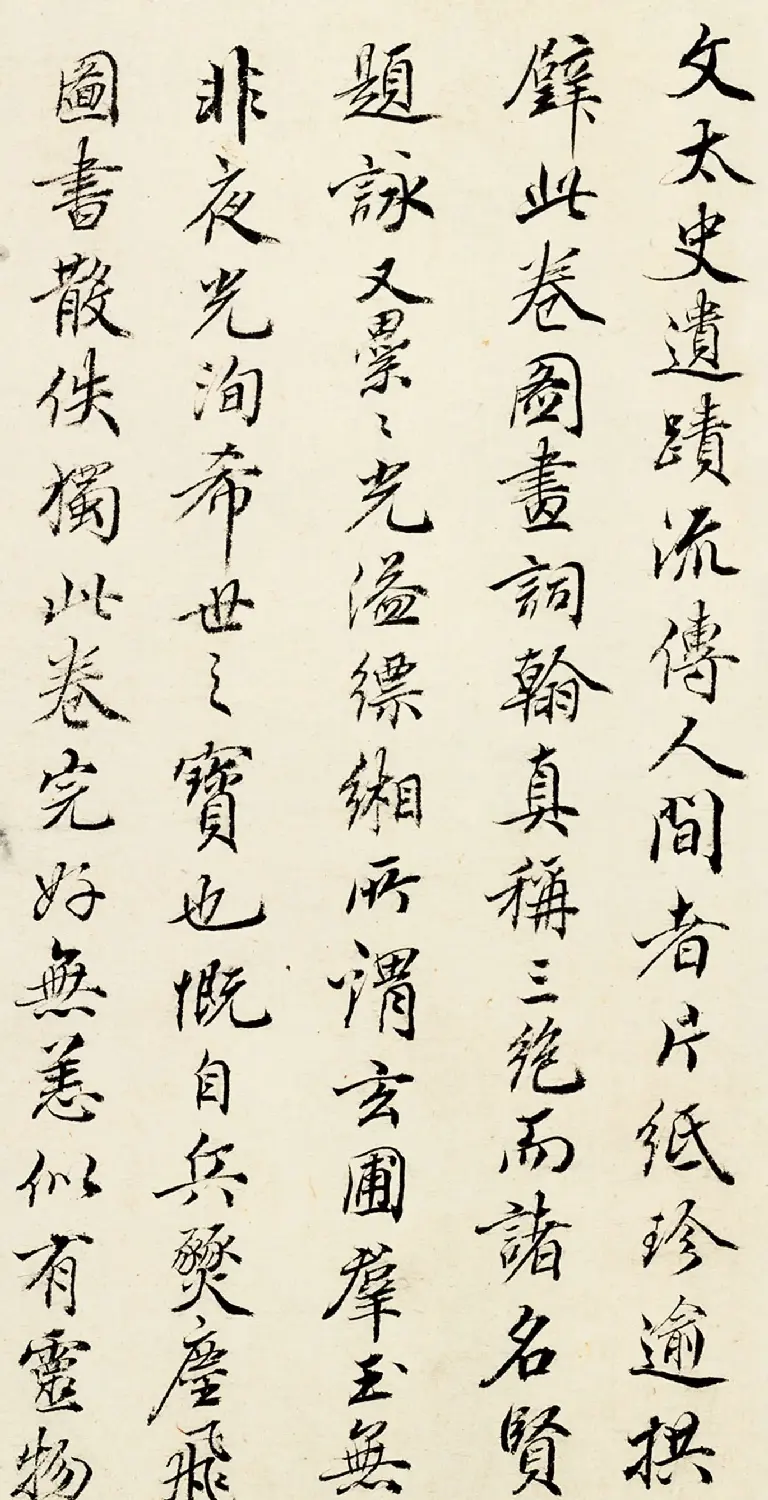 文太史遺蹟流傳人間者片紙珍逾拱
璧此卷圖畫詞翰真稱三絶而諸名賢
題詠又纍〻光溢縹緗所謂玄圃羣玉無
非夜光洵希世之寶也慨自兵燹塵飛
圖書散佚獨此卷完好無恙似有靈物